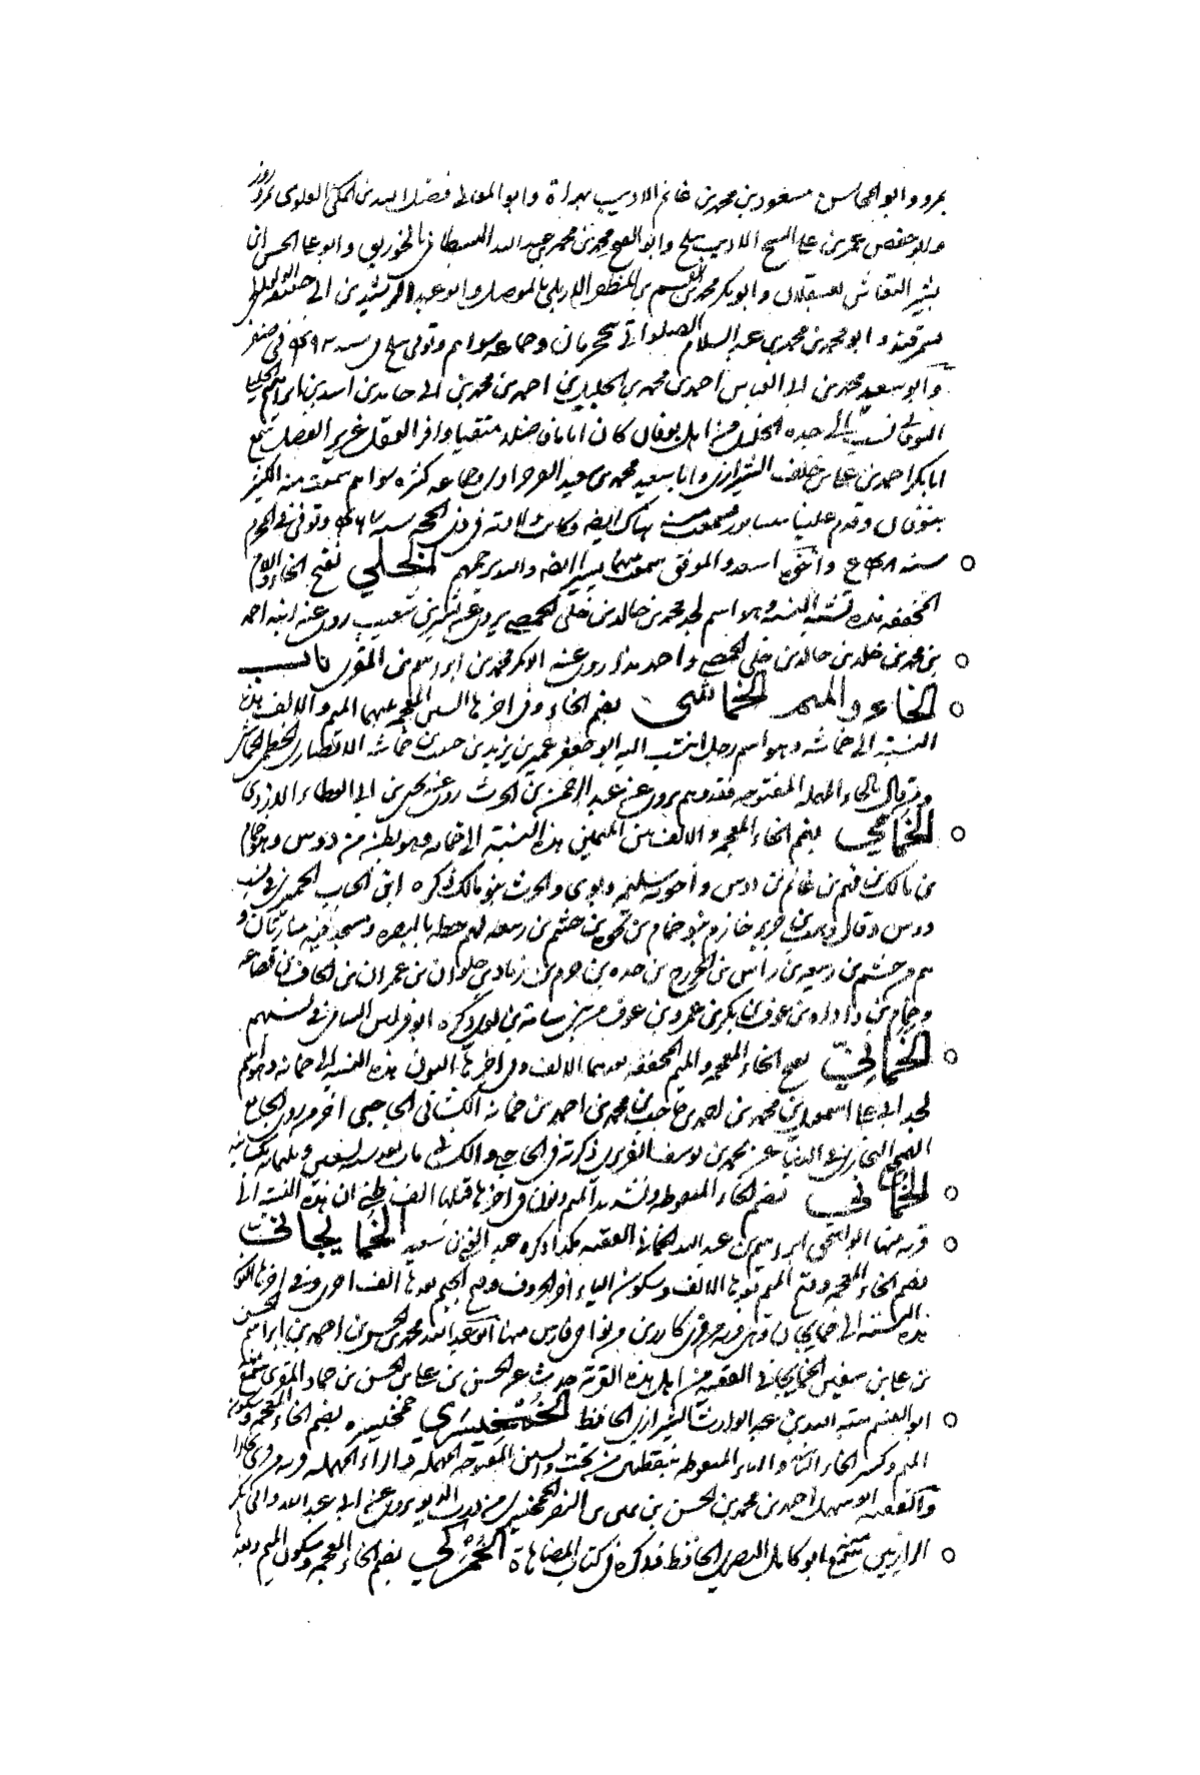 بمرو وابو المحاسن مسعود بن محمد بن غانم الاديب بهراة وابو المعالى فضل الله بن المكى العلوى بمرو روز
وابو حفص عمر بن على الشيخ الاديب ببلخ وابو الفتح محمد بن محمد بن عبد الله البسطامى بالخورنق وابو على الحسن بن
بشير النقاش وابو بكر محمد بن القسم بن المظفر الاربلى بالموصل وابو عبد الله الرشيد بن ابى حنيفة
بسمرقند وابو محمد بن محمد بن عبد السلام وجماعة سواهم وتوفى ببلخ فى سنة فى صفر
وابو سعيد محمد بن ابى العباس احمد بن محمد بن الخليل بن احمد بن محمد بن ابى حامد بن اسد بن ابراهيم الخليلى
النوقانى نسب الى جده الخليل من اهل نوقان كان اماما فاضلا متقيا وافر العقل غزير الفضل سمع
ابا بكر احمد بن على بن خلف الشيرازى وابا سعيد محمد بن سعيد وجماعة كثيرة سواهم سمعت منه الكثير
بنوقان وقدم علينا نيسابور فسمعت منه هناك ايضا وكانت ولادته فى ذى الحجة سنة وتوفى فى المحرم
سنة واخوه اسعد والموفق سمعت منهما يسيرا ايضا والله يرحمهم الخلى بفتح الخاء واللام
المخففة هذه تشبه النسبة وهو اسم لجد محمد بن خالد بن خلى الحمصى يروى عن بشر بن شعيب روى عنه ابنه احمد
بن محمد بن خالد بن خلى الحمصى واحمد هذا روى عنه ابو بكر محمد بن ابراهيم بن المقرى باب
الخاء والميم الخماشى بضم الخاء وفى اخرها الشين المعجمة بينهما الميم والالف هذه
النسبة الى خماشة وهو اسم رجل انتسب اليه ابو جعفر عمير بن يزيد بن حبيب بن خماشة الانصارى الخطمى الخماشى
ومن قال بالحاء المهملة المفتوحة فقد وهم يروى عن عبد الرحمن بن الحرث روى عنه يحيى بن ابى العطاء الازدى
الخمامى بضم الخاء المعجمة والالف بين الميمين هذه النسبة الى خمام وهو بطن من دوس وهو خمام
بن مالك بن فهم بن غانم بن دوس واخوته سليمة وهوى والحرث بنو مالك ذكره ابن الحباب الحميرى فى نسب
دوس وقال وهب بن جرير بن حازم بنو خمام بن نحوه بن جشم بن ربيعة لهم خطة بالبصرة ومسجد فيه منارتان و
هم من جشم بن ربيعة بن راسب بن الخزرج بن جدة بن جرم بن زبان بن حلوان بن عمران بن الحاف بن قضاعة
وخمام بن داداه بن عوف بن بكر بن عمرو بن عوف من بنى سامة بن لوى ذكره ابو فراس السامى فى نسبهم
الخمانى بفتح الخاء المعجمة والميم المخففة بعدهما الالف وفى اخرها النون هذه النسبة الى خمانة وهو اسم
لجد ابى على اسمعيل بن محمد بن احمد بن حاجب بن محمد بن احمد بن خمانة الكشانى الحاجبى اخر من روى الجامع
الصحيح للبخارى فى الدنيا عن محمد بن يوسف الفربرى ذكرته فى الحاجبى والكشانى مات بعد سنة تسعين وثلثمائة بكشانية
الخمانى بضم الخاء المنقوطة وتشديد الميم ونون فى اخرها قبلها الف ظنى ان هذه النسبة الى
قرية منها ابو اسحق ابراهيم بن عبد الله الخمانى الفقيه هكذا ذكره عبد الغنى بن سعيد الخمايجانى
بضم الخاء المعجمة وفتح الميم بعدها الالف وسكون الياء اخر الحروف وفتح الجيم بعدها الف اخرى وفى اخرها النون
هذه النسبة الى خمايجان وهى قرية من قرى كازرون من نواحى فارس منها ابو عبد الله محمد بن الحسن بن احمد بن ابراهيم بن الحسن
بن على بن سفين الخمايجانى الفقيه من اهل هذه القرية حدث عن الحسن بن على بن الحسن بن حماد المقرى سمع منه
ابو القسم هبة الله بن عبد الوارث الشيرازى الحافظ الخمخيسرى خمخيسره بضم الخاء المعجمة وسكون
الميم وكسر الخاء الثانية والياء المنقوطة بنقطتين من تحت والسين المفتوحة المهملة والراء المهملة قرية من قرى بخارا
والفقيه ابو سهل احمد بن محمد بن الحسن بن بن النضر الخمخيسرى من هذه القرية يروى عن ابى عبد الله وابى بكر
الرازيين سمع منه ابو كامل البصرى الحافظ وذكره فى كتاب المضاهاة الخمركى بضم الخاء المعجمة وسكون الميم وبعدها